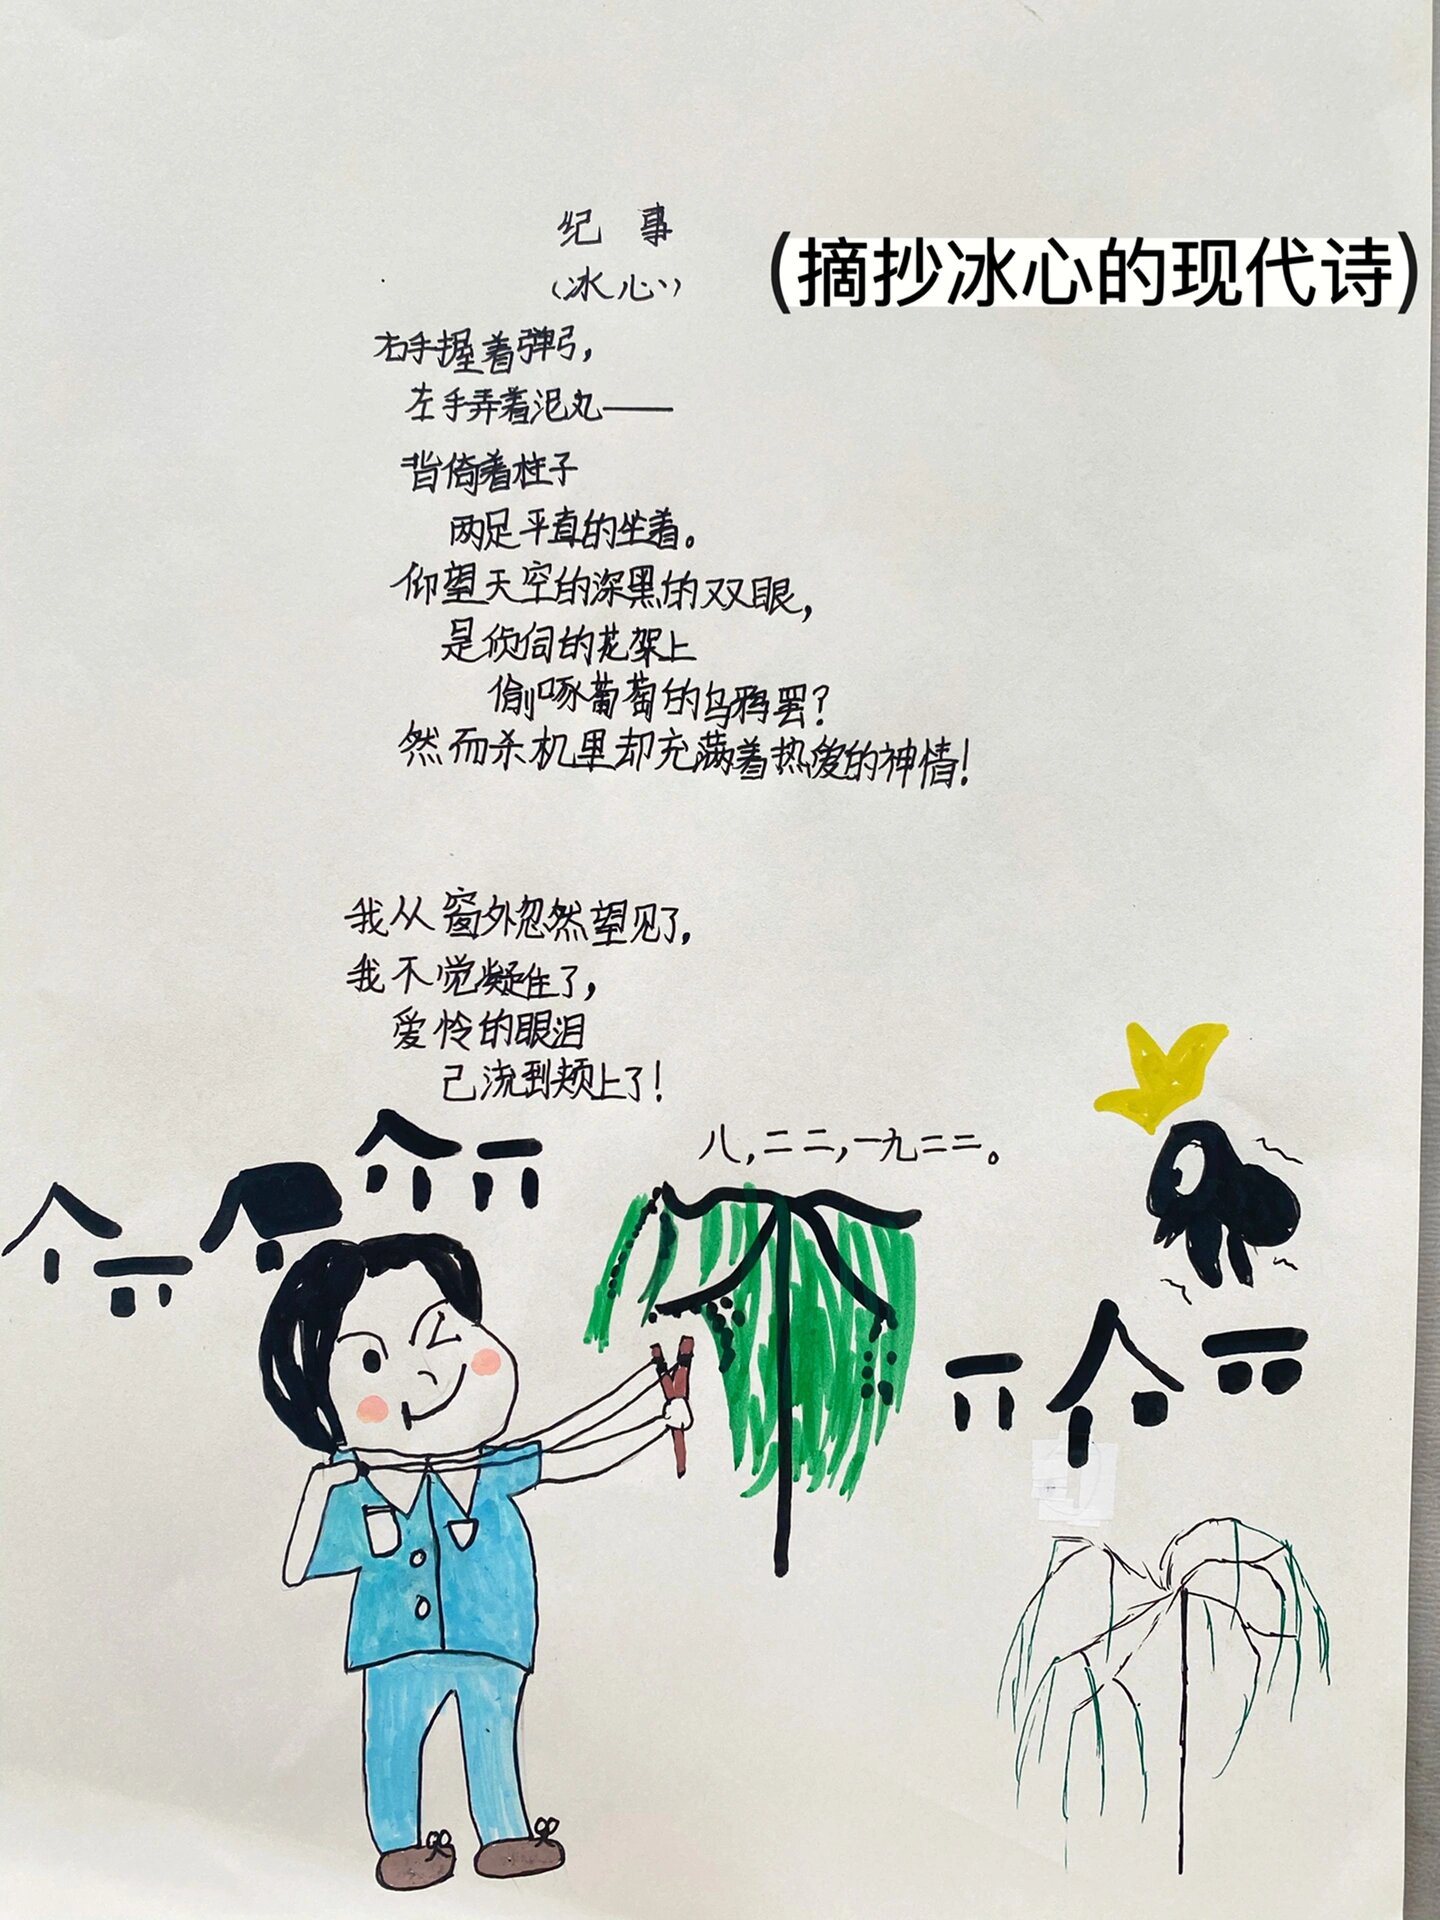 纪事
(摘抄冰心的现代诗)
(冰心)
右手握着弹弓，
左手弄着泥丸——
背倚着柱子
两足平直的坐着。
仰望天空的深黑的双眼，
是侦伺的花架上
偷啄葡萄的乌鸦罢？
然而杀机里却充满着热爱的神情！
我从窗外忽然望见了，
我不觉凝住了，
爱怜的眼泪
已流到颊上了！
八，二二，一九二二。